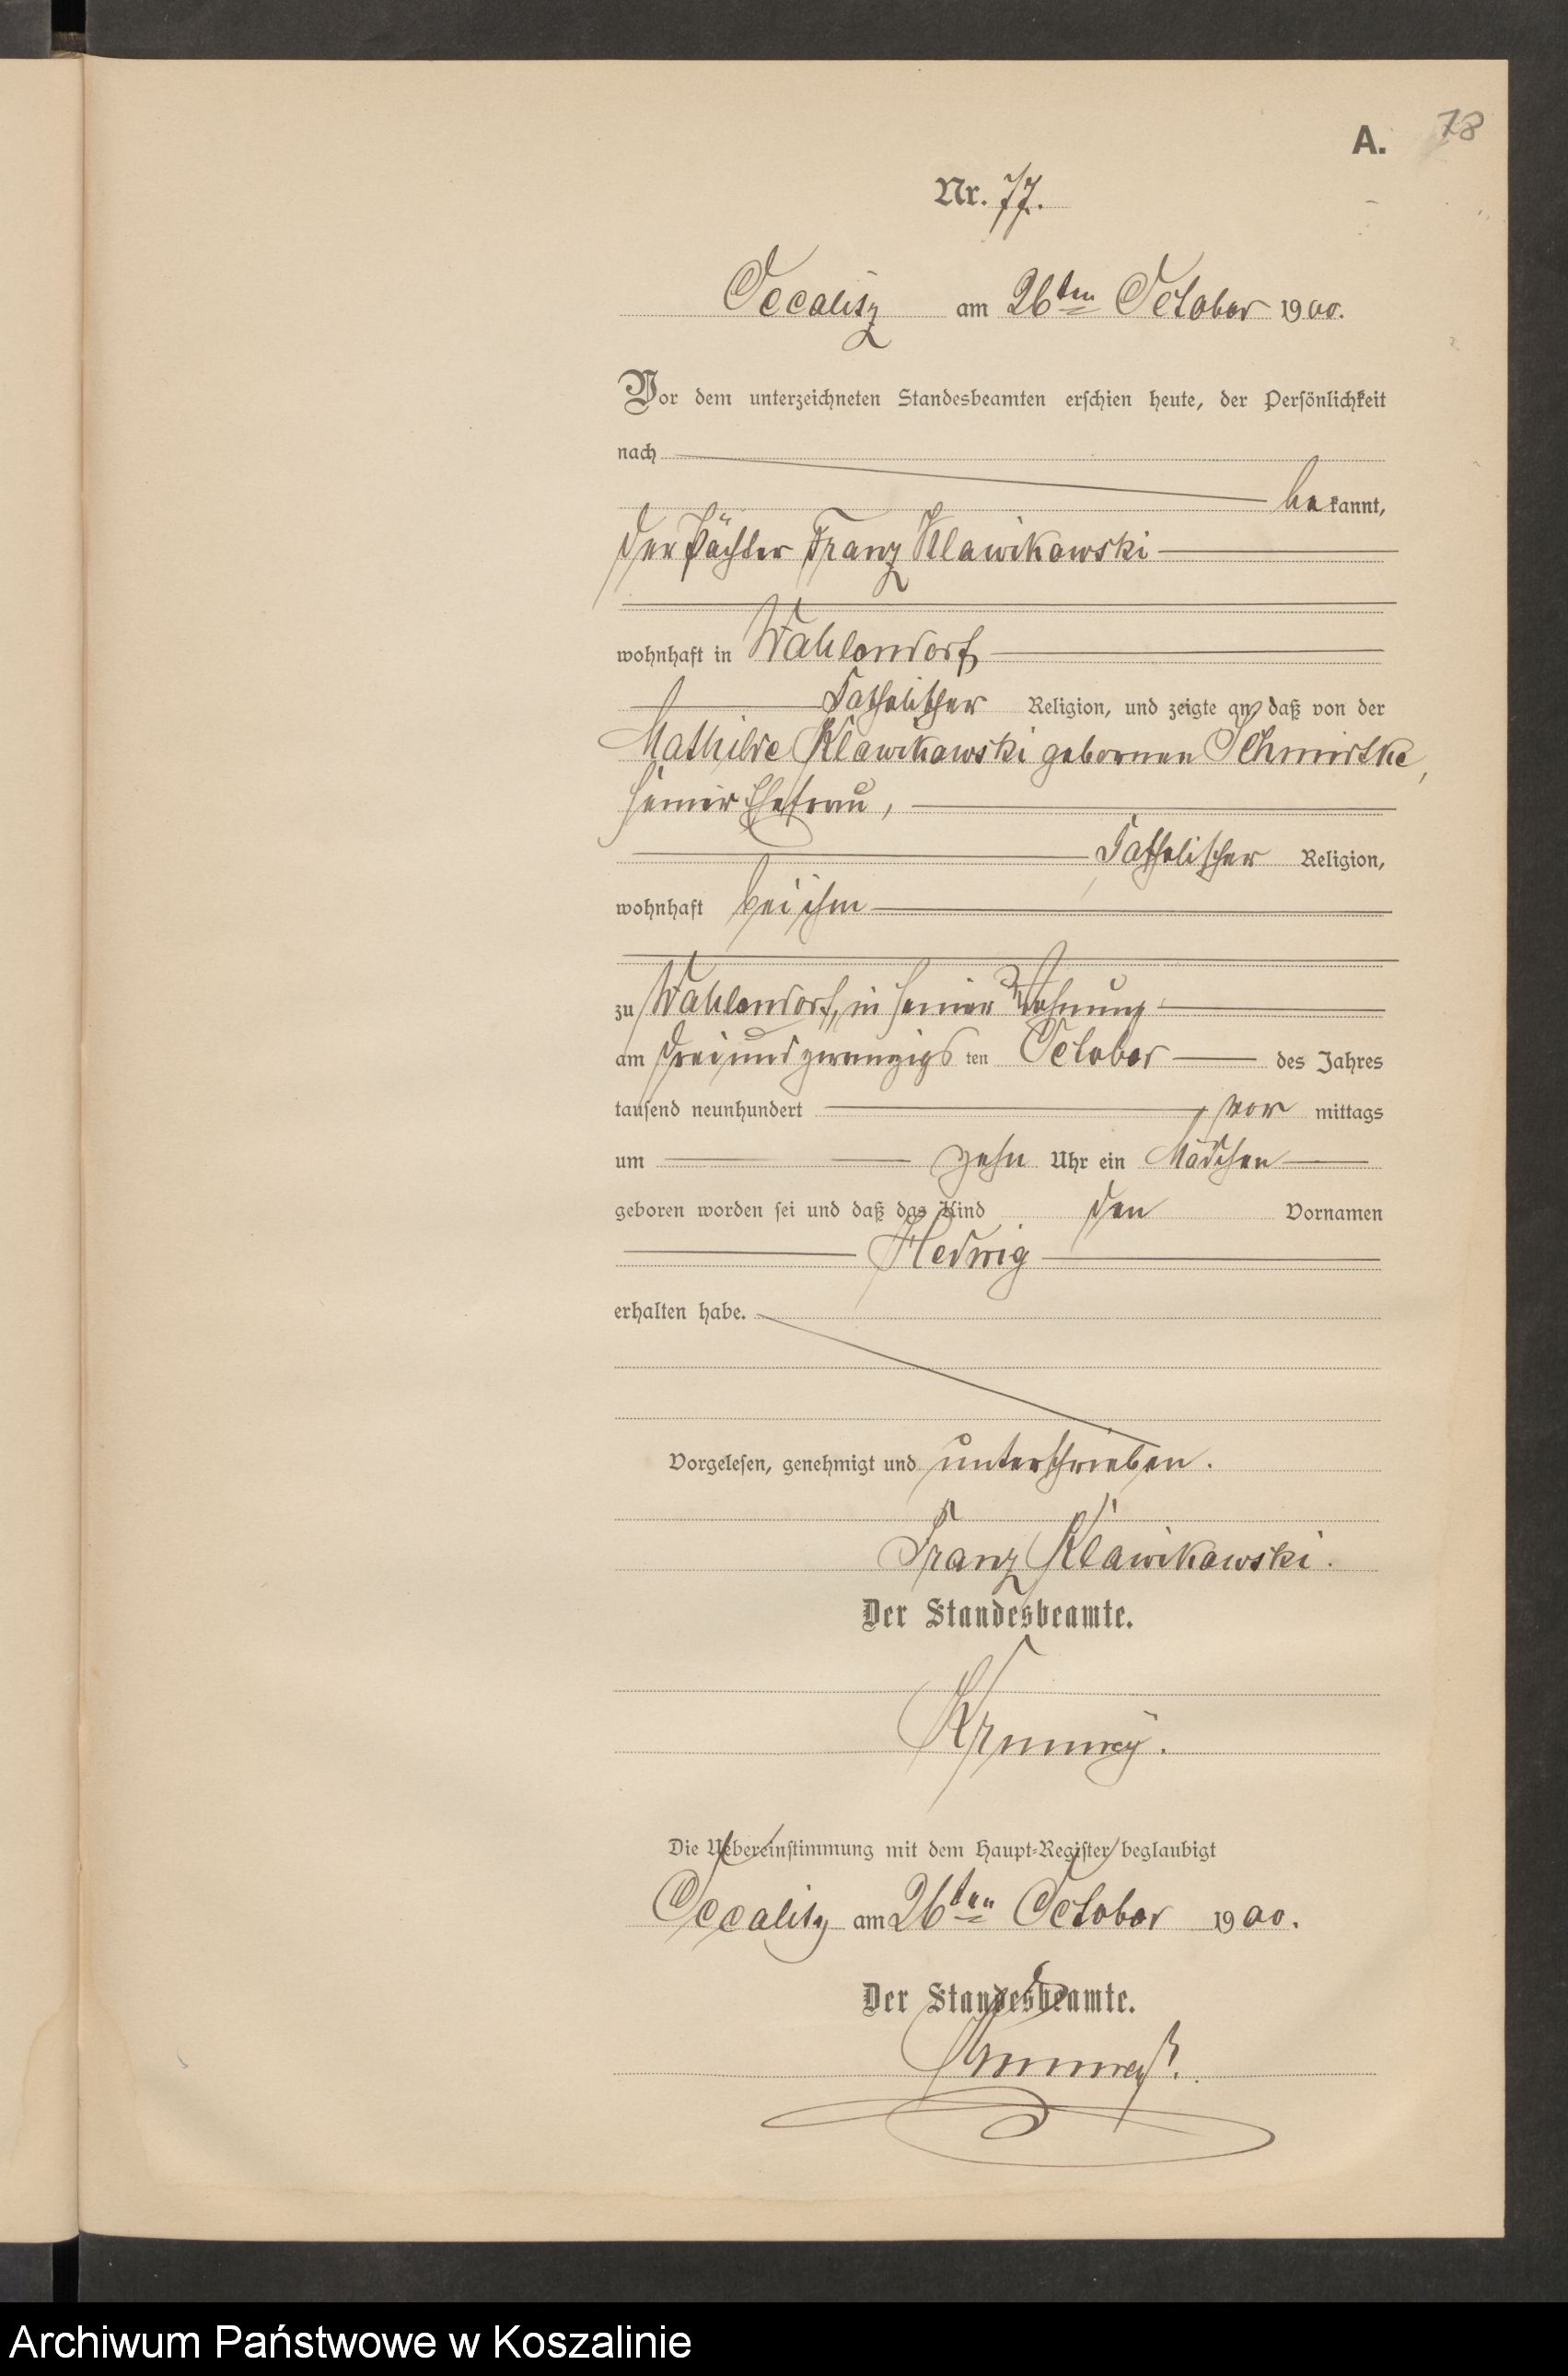 78
A.
Nr. 77.
Occalitz am 26ten October 1900.
Vor dem unterzeichneten Standesbeamten erschien heute, der Persönlichkeit
nach
bekannt,
der Pächter Franz Klawikowski
wohnhaft in Wahlendorf
katholischer Religion, und zeigte an, daß von der
Mathilde Klawikowski gebornen Schmidtke,
seiner Ehefrau,
katholischer Religion,
wohnhaft bei ihm
zu Wahlendorf, in seiner Wohnung
am dreiundzwanzigsten October des Jahres
tausend neunhundert, vor mittags
um zehn Uhr ein Mädchen
geboren worden sei und daß das Kind den Vornamen
Hedwig
erhalten habe.
Vorgelesen, genehmigt und unterschrieben.
Franz Klawikowski.
Der Standesbeamte.
Die Uebereinstimmung mit dem Haupt-Register beglaubigt
Occalitz am 26ten October 1900.
Der Standesbeamte.
Archiwum Państwowe w Koszalinie